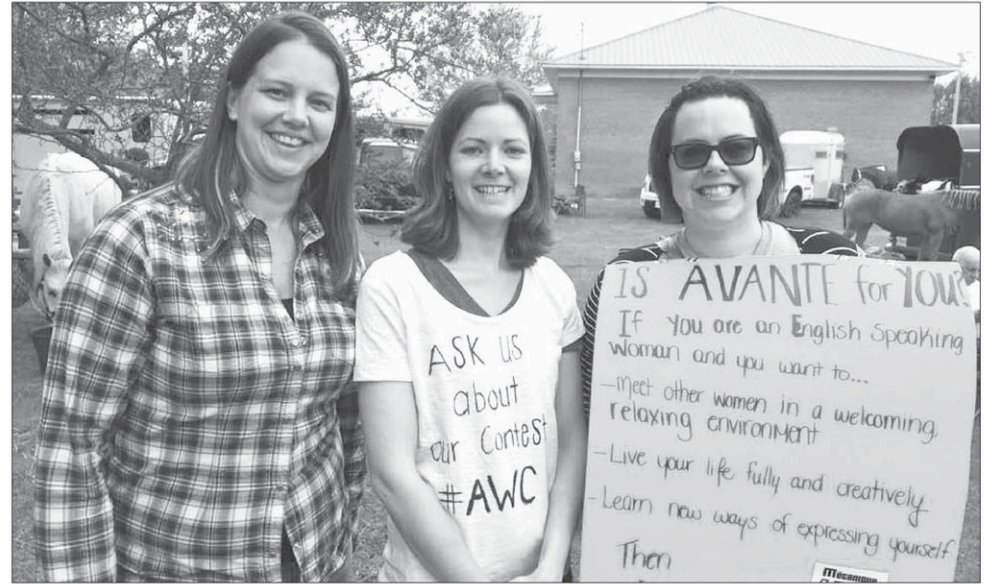 ASK US
about
our Contest
#AWC
IS AVANTE for YOU?
If you are an English Speaking
Woman and you want to...
-Meet other women in a welcoming,
relaxing environment
-Live your life fully and creatively
-Learn new ways of expressing yourself
Then